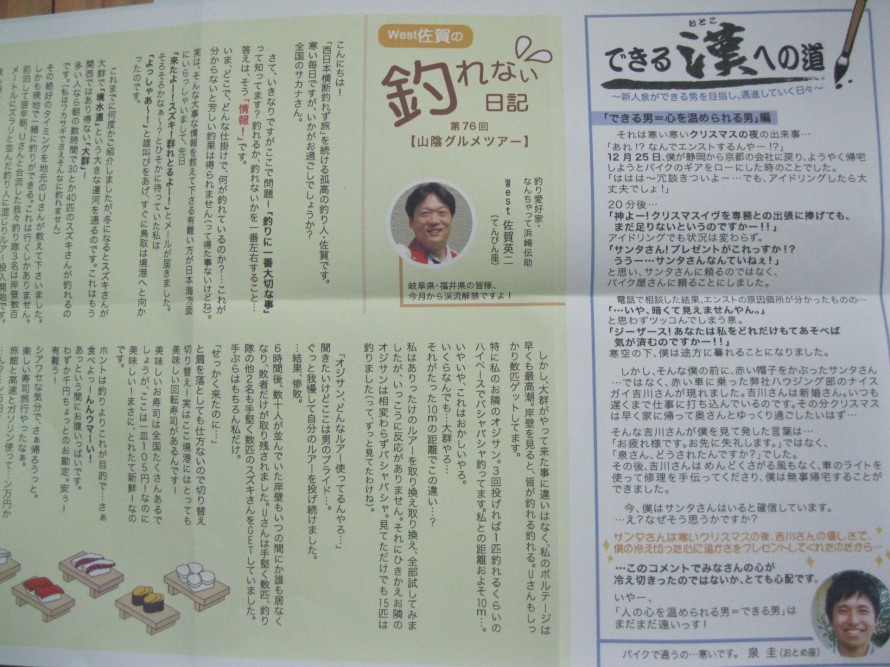 West佐賀の
釣れない
日記
第76回
【山陰グルメツアー】
釣り愛好家・
なんちゃって浜崎伝助
West 佐賀英二
(てんびん座)
岐阜県・福井県の皆様、
今月から渓流解禁ですよ!
こんにちは!
「西日本横断釣れず旅」を続ける孤高の釣り人・佐賀です。
寒い毎日ですが、いかがお過ごしでしょうか?
全国のサカナさん。
さて、いきなりですがここで問題!「釣りに一番大切な事」
って知ってます?釣れるか、釣れないかを一番左右すること…
答えは、そう「情報!」です。
いま、どこで、どんな仕掛けで、何が釣れているのか?…これが
分からないと芳しい釣果は得られません(って得た事ないけどね)。
実は、そんな大事な情報を教えて下さる有難い方が日本海方面
にいらっしゃいまして、先日
「来たよー!スズキ!群れとるよー!」とメールが届きました。
そろそろかなぁ〜?とひそかに待っていた私は
「よっしゃあ〜!」と雄叫びをあげ、すぐに鳥取は境港へと向か
ったのです。
これまでに何度かご紹介しましたが、冬になるとスズキさんが
大群で「境水道」という大きな運河を通るのです。これはもう
関西ではあり得ない「大群」。
多い人なら朝の数時間で30とか40匹のスズキさんが釣れるの
です。(私はワカサギでさえそんなに釣れません)
その絶好のタイミングを地元のUさんが教えて下さいました。
しかも現地で一緒に釣りができる。これは行くしかありません。
前泊して翌早朝、Uさんと合流した我々釣り隊3名は岸壁数百
メートルにズラリと並んだ釣り人に混じりルアー投入開始です。
しかし、大群がやって来た事に違いはなく、私のボルテージは
早くも最高潮。岸壁を見ると、皆が釣れる釣れる。Uさんもしっ
かり数匹ゲットしてます。
特に私のお隣のオジサン。3回投げれば1匹釣れるくらいの
ハイペースでバシャバシャ釣ってます。私との距離およそ10m…。
いやいや、これはおかしいやろ。
いくらなんでも…大群やろ…。
それがたった10mの距離でこの違い…?
私はありったけのルアーを取り換え取り換え、全部試してみま
したが、いっこうに反応がありません。それにひきかえお隣の
オジサンは相変わらずバシャバシャ。見てただけでも15匹は
釣りました(って、ずっと見てたわけね)。
「オジサン、どんなルアー使ってるんやろ…」
聞きたいけどここは男のプライド…。
ぐっと我慢して自分のルアーを投げ続けました。
…結果、惨敗。
6時間後、数十人が並んでいた岸壁もいつの間にか誰も居なく
なり、敗者だけが取り残されました。Uさんは手堅く数匹、釣り
隊の他2名も手堅く数匹のスズキさんをGETしていました。
手ぶらはもちろん私だけ。
「せっかく来たのに…」
と肩を落としても仕方ないので切り替え
切り替え!実はここ境港にはとっても
美味しい回転寿司があるんです!
美味しいお寿司は全国たくさんあるで
しょうが、ここは一皿105円!なのに
美味しい!まさに、とれたて新鮮!なの
です。
ホントは釣りよりこれが目的で…さぁ
食べよっ!んんウマーい!
あっという間にお腹いっぱいです。
わずか千円ちょっとのお勘定。安ぅ〜
有難う!
シアワセな気分で、さぁ帰ろうっと。
楽しい寿司旅行やったなぁ。
旅館と高速とガソリン使って一ン万円か
できる漢への道
おとこ
〜新人泉ができる男を目指し、邁進していく日々〜
「できる男=心を温められる男」編
それは寒い寒いクリスマスの夜の出来事…
「あれ!?なんでエンストするんやー!?」
12月25日、僕が静岡から京都の会社に戻り、ようやく帰宅
しようとバイクのギアをローにした時のことでした。
「ははは〜冗談きついよー…でも、アイドリングしたら大
丈夫でしょ!」
20分後…
「神よー!クリスマスイヴを専務との出張に捧げても、
まだ足りないというのですかー!!」
アイドリングでも状況は変わらず。
「サンタさん!プレゼントがこれっすか!?
ううー…サンタさんなんていねぇ!」
と思い、サンタさんに頼るのではなく、
バイク屋さんに頼ることにしました。
電話で相談した結果、エンストの原因個所が分かったものの…
「…いや、暗くて見えませんやん。」
と思わずツッコんでしまう泉。
「ジーザース!あなたは私をどれだけもてあそべば
気が済むのですかー!!」
寒空の下、僕は途方に暮れることになりました。
しかし、そんな僕の前に、赤い帽子をかぶったサンタさん
…ではなく、赤い車に乗った弊社ハウジング部のナイス
ガイ吉川さんが現れました。吉川さんは新婚さん。いつも
遅くまで仕事に打ち込んでいるのです。その分クリスマス
は早く家に帰って奥さんとゆっくり過ごしたいはず…
そんな吉川さんが僕を見て発した言葉は…
「お疲れ様です。お先に失礼します。」ではなく、
「泉さん、どうされたんですか?」でした。
その後、吉川さんはめんどくさがる風もなく、車のライトを
使って修理を手伝ってくださり、僕は無事帰宅することが
できました。
今、僕はサンタさんはいると確信しています。
…え?なぜそう思うかですか?
サンタさんは寒いクリスマスの夜、吉川さんの優しさで、
僕の冷え切った心に温かさをプレゼントしてくれたのだから…
…このコメントでみなさんの心が
冷え切きったのではないか、とても心配です。
いやー、
「人の心を温められる男=できる男」は
まだまだ遠いっす!
バイクで通うの…寒いです。 泉 圭(おとめ座)